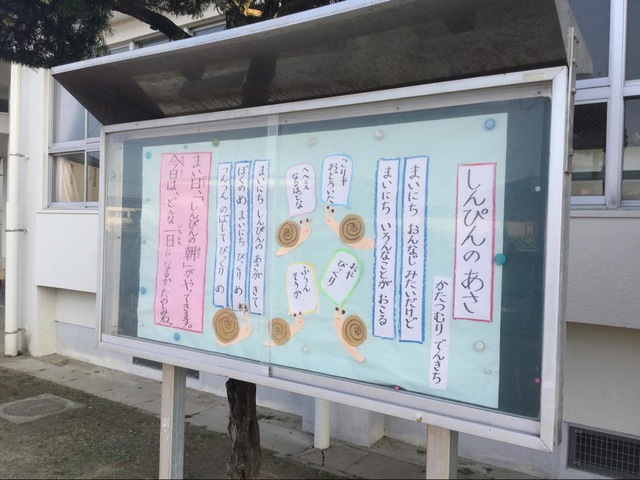 しんぴんのあさ
かたつむり でんきち
まいにち おんなじ みたいだけど
まいにち いろんなことが おこる
こりゃ
おどろいた
へええ
なるほどな
おや
びっくり
ふうん
そうか
まいにち しんぴんの あさが きて
ぼくのめ まいにち びっくり め
つんつん のばして びっくり め
まい日、「しんぴんの朝」が やってきます。
今日は、どんな 一日になるか たのしみね。